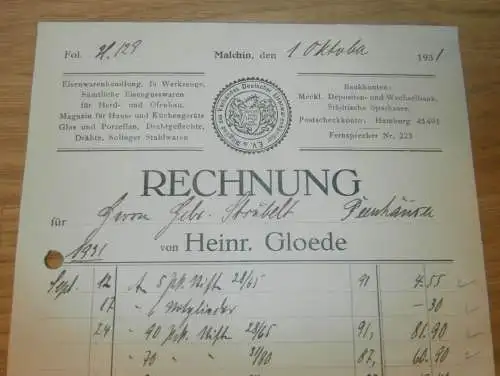 Fol. H. 129
Malchin, den 1 Oktober 1931
Eisenwarenhandlung, fr Werkzeuge,
Sämtliche Eisengusswaren
für Herd- und Ofenbau,
Magazin für Haus- und Küchengeräte
Glas und Porzellan, Drahtgeflechte,
Drähte, Solinger Stahlwaren
Bankkonten:
Meckl. Depositen- und Wechselbank,
Städtische Sparkasse,
Postscheckkonto: Hamburg 45491
Fernsprecher Nr. 223
RECHNUNG
für Herrn Gebr. Strübelt
1931 von Heinr. Gloede
Sept. 12 An 5 Stifte 28/65 91 4.55
17 6 – 30
24 90 Stifte 28/65 91, 81.90
70 " " 31/80 87, 60.90